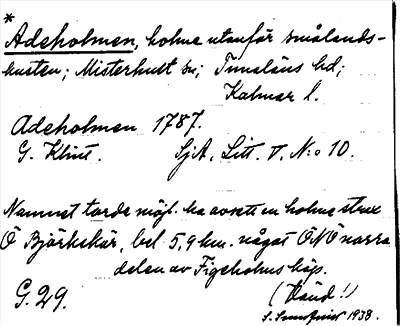 *
Adeholmen, holme utanför smålands-
kusten; Misterhult sn; Tunaläns hd;
Kalmar l.
Adeholmen 1787.
G. Klint. SjA. Litt. V. N:o 10.
Namnet torde möjl. ha avsett en holme strax
Ö Björkskär, bel 5,9 km. något ÖNÖ norra
delen av Figeholms köp.
G. 29. (Känd!)
S. 1938.